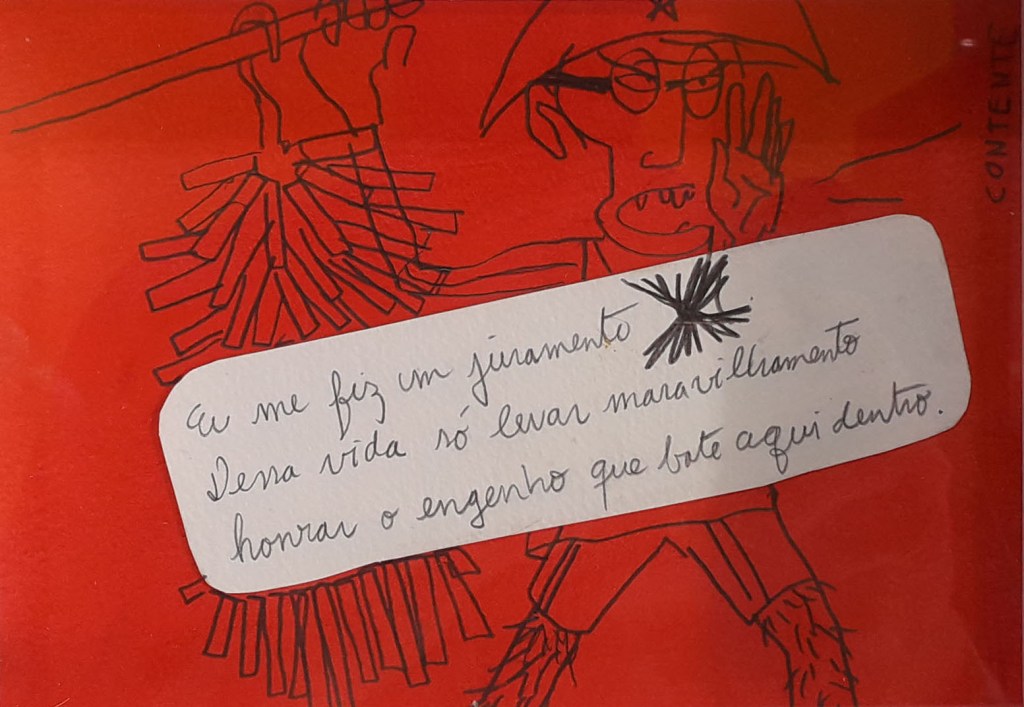 CONTENTE
Eu me fiz um juramento
Dessa vida só levar maravilhamento
honrar o engenho que bate aqui dentro.